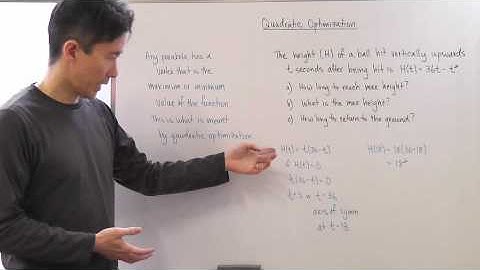 Quadratic Optimization
Any parabola has a
vertex that is the
maximum or minimum
value of the function.
This is what is meant
by quadratic optimization.
The height (H) of a ball hit vertically upwards
t seconds after being hit is H(t) = 36t - t²
a) How long to reach max height?
b) What is the max height?
c) How long to return to the ground?
H(t) = t(36-t)
H(t)=0
t(36-t)=0
t=0 or t=36
axis of symm
at t=18
H(18) = 18(36-18)
= 18²